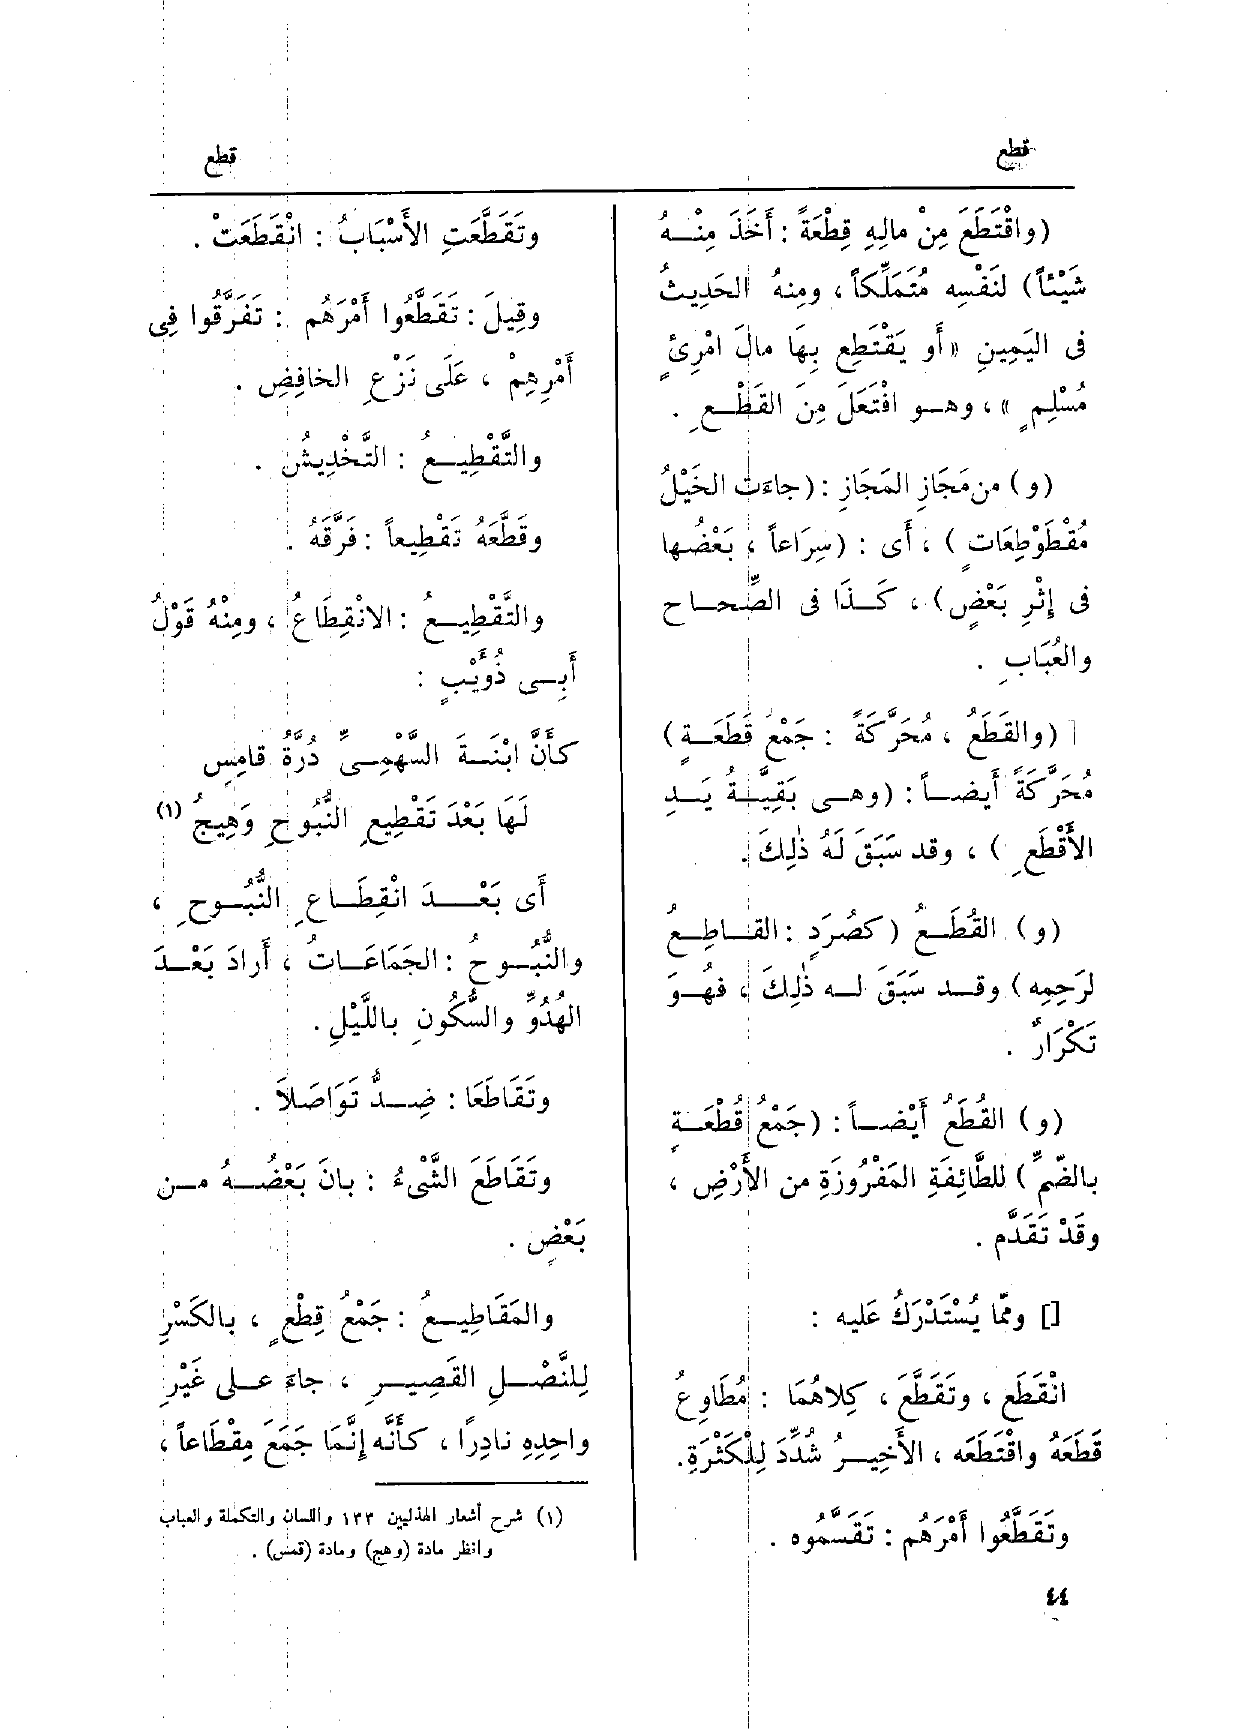 قطع
قطع
(واقْتَطَعَ مِنْ مالِهِ قِطْعَةً : أَخَذَ مِنْــهُ
شَيْئاً) لنَفْسِه مُتَمَلِّكاً ، ومِنهُ الحَدِيثُ
فى اليَمِينِ «أَو يَقْتَطِع بِهَا مالَ امْرِئٍ
مُسْلِمٍ » ، وهــو افْتَعَلَ مِنَ القَطْـعِ .
(و) من مَجَازِ المَجَازِ : (جاءَت الخَيْلُ
مُقْطَوْطِعَاتٍ ) ، أَى : (سِرَاعاً ، بَعْضُها
فى إِثْرِ بَعْضٍ) ، كَــذَا فى الصّحــاح
والعُبَابِ .
[ (والقَطَعُ ، مُحَرَّكَةً : جَمْعُ قَطَعَــةٍ)
مُحَرَّكَةً أَيضــاً : (وهــى بَقِيَّــةُ يَــدِ
الأَقْطَعِ ) ، وقد سَبَقَ لَهُ ذٰلِكَ .
(و) القُطَــعُ (كصُرَدٍ : القــاطِــعُ
لرَحِمِه) وقــد سَبَقَ لــه ذٰلِكَ ، فهُــوَ
تَكْرَارٌ .
(و) القُطَعُ أَيْضــاً : (جَمْعُ قُطْعَــةٍ
بالضّمِّ) للطَّائِفَةِ المَفْرُوزَةِ من الأَرْضِ ،
وقَدْ تَقَدَّم .
[] وممّا يُسْتَدْرَكُ عَليه :
انْقَطَع ، وتَقَطَّع ، كِلاهُمَا : مُطَاوِعُ
قَطَعَهُ واقْتَطَعَه ، الأَخيــرُ شُدِّدَ لِلْكَثْرَةِ.
وتَقَطَّعُوا أَمْرَهُم : تَقَسَّمُوه .
وتَقَطَّعَتِ الأَسْبَابُ : انْقَطَعَتْ .
وقِيلَ : تَقَطَّعُوا أَمْرَهُم : تَفَرَّقُوا فِى
أَمْرِهِمْ ، عَلَى نَزْعِ الخافِضِ .
والتَّقْطِيــعُ : التَّخْدِيشُ .
وقَطَّعَهُ تَقْطِيعاً : فَرَّقَهُ .
والتَّقْطِيــعُ : الانْقِطَاعُ ، ومِنْهُ قَوْلُ
أَبِــى ذُؤَيْبٍ :
كأَنَّ ابْنَــةَ السَّهْمِــىِّ دُرَّةُ قامِسٍ
لَهَا بَعْدَ تَقْطِيعِ النُّبُوحِ وَهِيجُ (١)
أَى بَعْــدَ انْقِطَــاعِ النُّبُــوحِ ،
والنُّبُــوحُ : الجَمَاعَــاتُ ، أَرادَ بَعْــدَ
الهُدُوِّ والسُّكُونِ بـاللَّيْلِ .
وتَقَاطَعَا : ضِــدُّ تَوَاصَلاَ .
وتَقَاطَعَ الشَّىْءُ : بانَ بَعْضُــهُ مــن
بَعْضٍ .
والمَقَاطِيــعُ : جَمْعُ قِطْعٍ ، بالكَسْرِ
لِلنَّصْــلِ القَصِيــرِ ، جاءَ عــلى غَيْرِ
واحِدِهِ نادِرًا ، كأَنَّه إِنَّمَا جَمَعَ مِقْطَاعاً ،
(١) شرح أشعار الهذليين ١٣٣ واللسان والتكملة والعباب
وانظر مادة (وهج) ومادة (قمس) .
٤٤